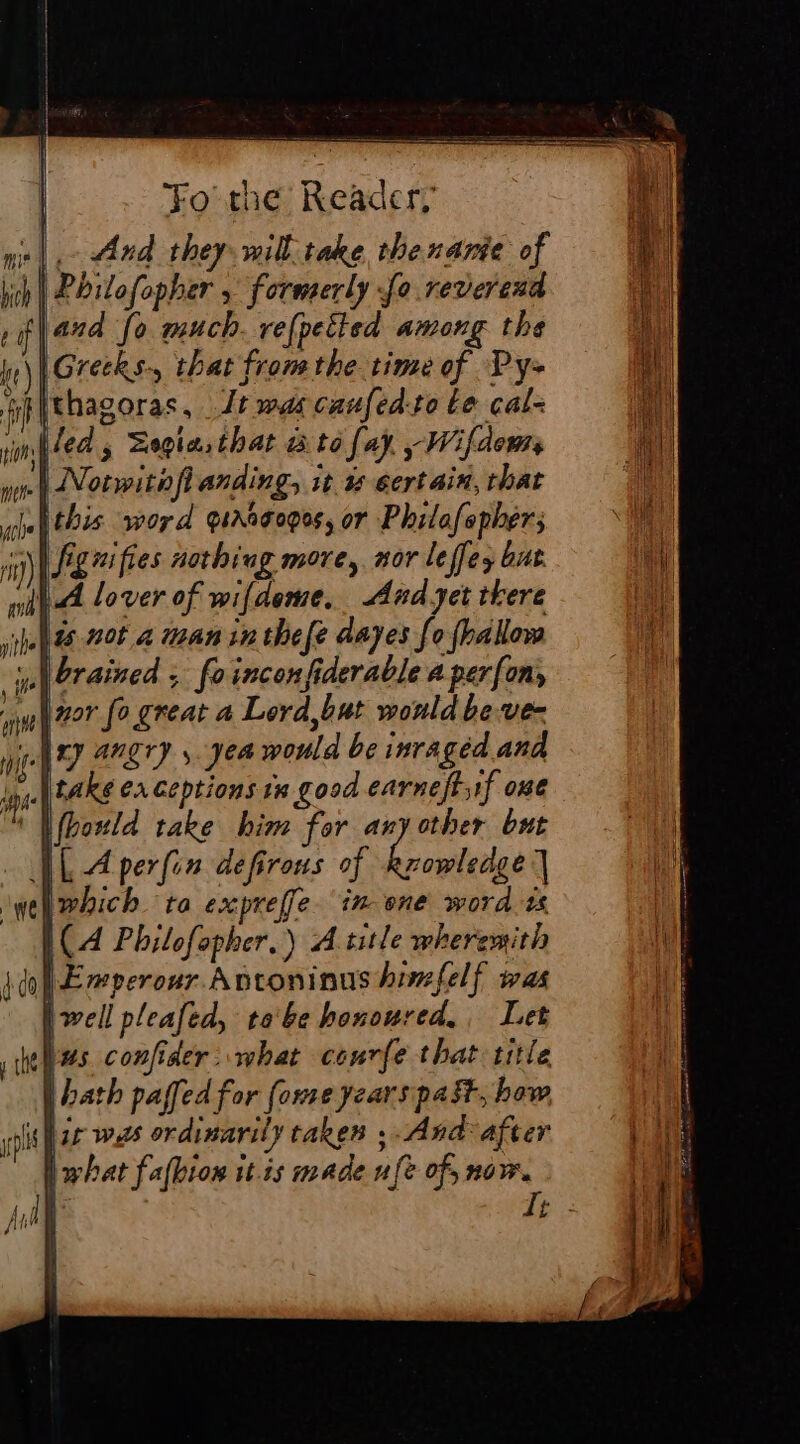 To the Reader,
And they will take the name of
Philoſopher, formerly ſo reverend
and ſo much reſpected among the
Greeks, that from the time of Py-
thagoras, It was cauſed to be cal-
led, Σοφία, that is to ſay, Wiſdom,
Notwithſtanding, it is certain, that
this word φιλόσοφος, or Philoſopher;
ſignifies nothing more, nor leſſe, but
A lover of wiſdome. And yet there
is not a man in theſe dayes ſo ſhallow
brained, ſo inconſiderable a perſon,
nor ſo great a Lord, but would be ve-
ry angry, yea would be inraged and
take exceptions in good earneſt, if one
ſhould take him for any other but
[A perſon deſirous of knowledge]
which to expreſſe in one word is
(A Philoſopher.) A title wherewith
Emperour Antoninus himſelf was
well pleaſed, to be honoured. Let
us conſider what courſe that title
hath paſſed for ſome years paſt, how
it was ordinarily taken; And after
what faſhion it is made uſe of, now.
It